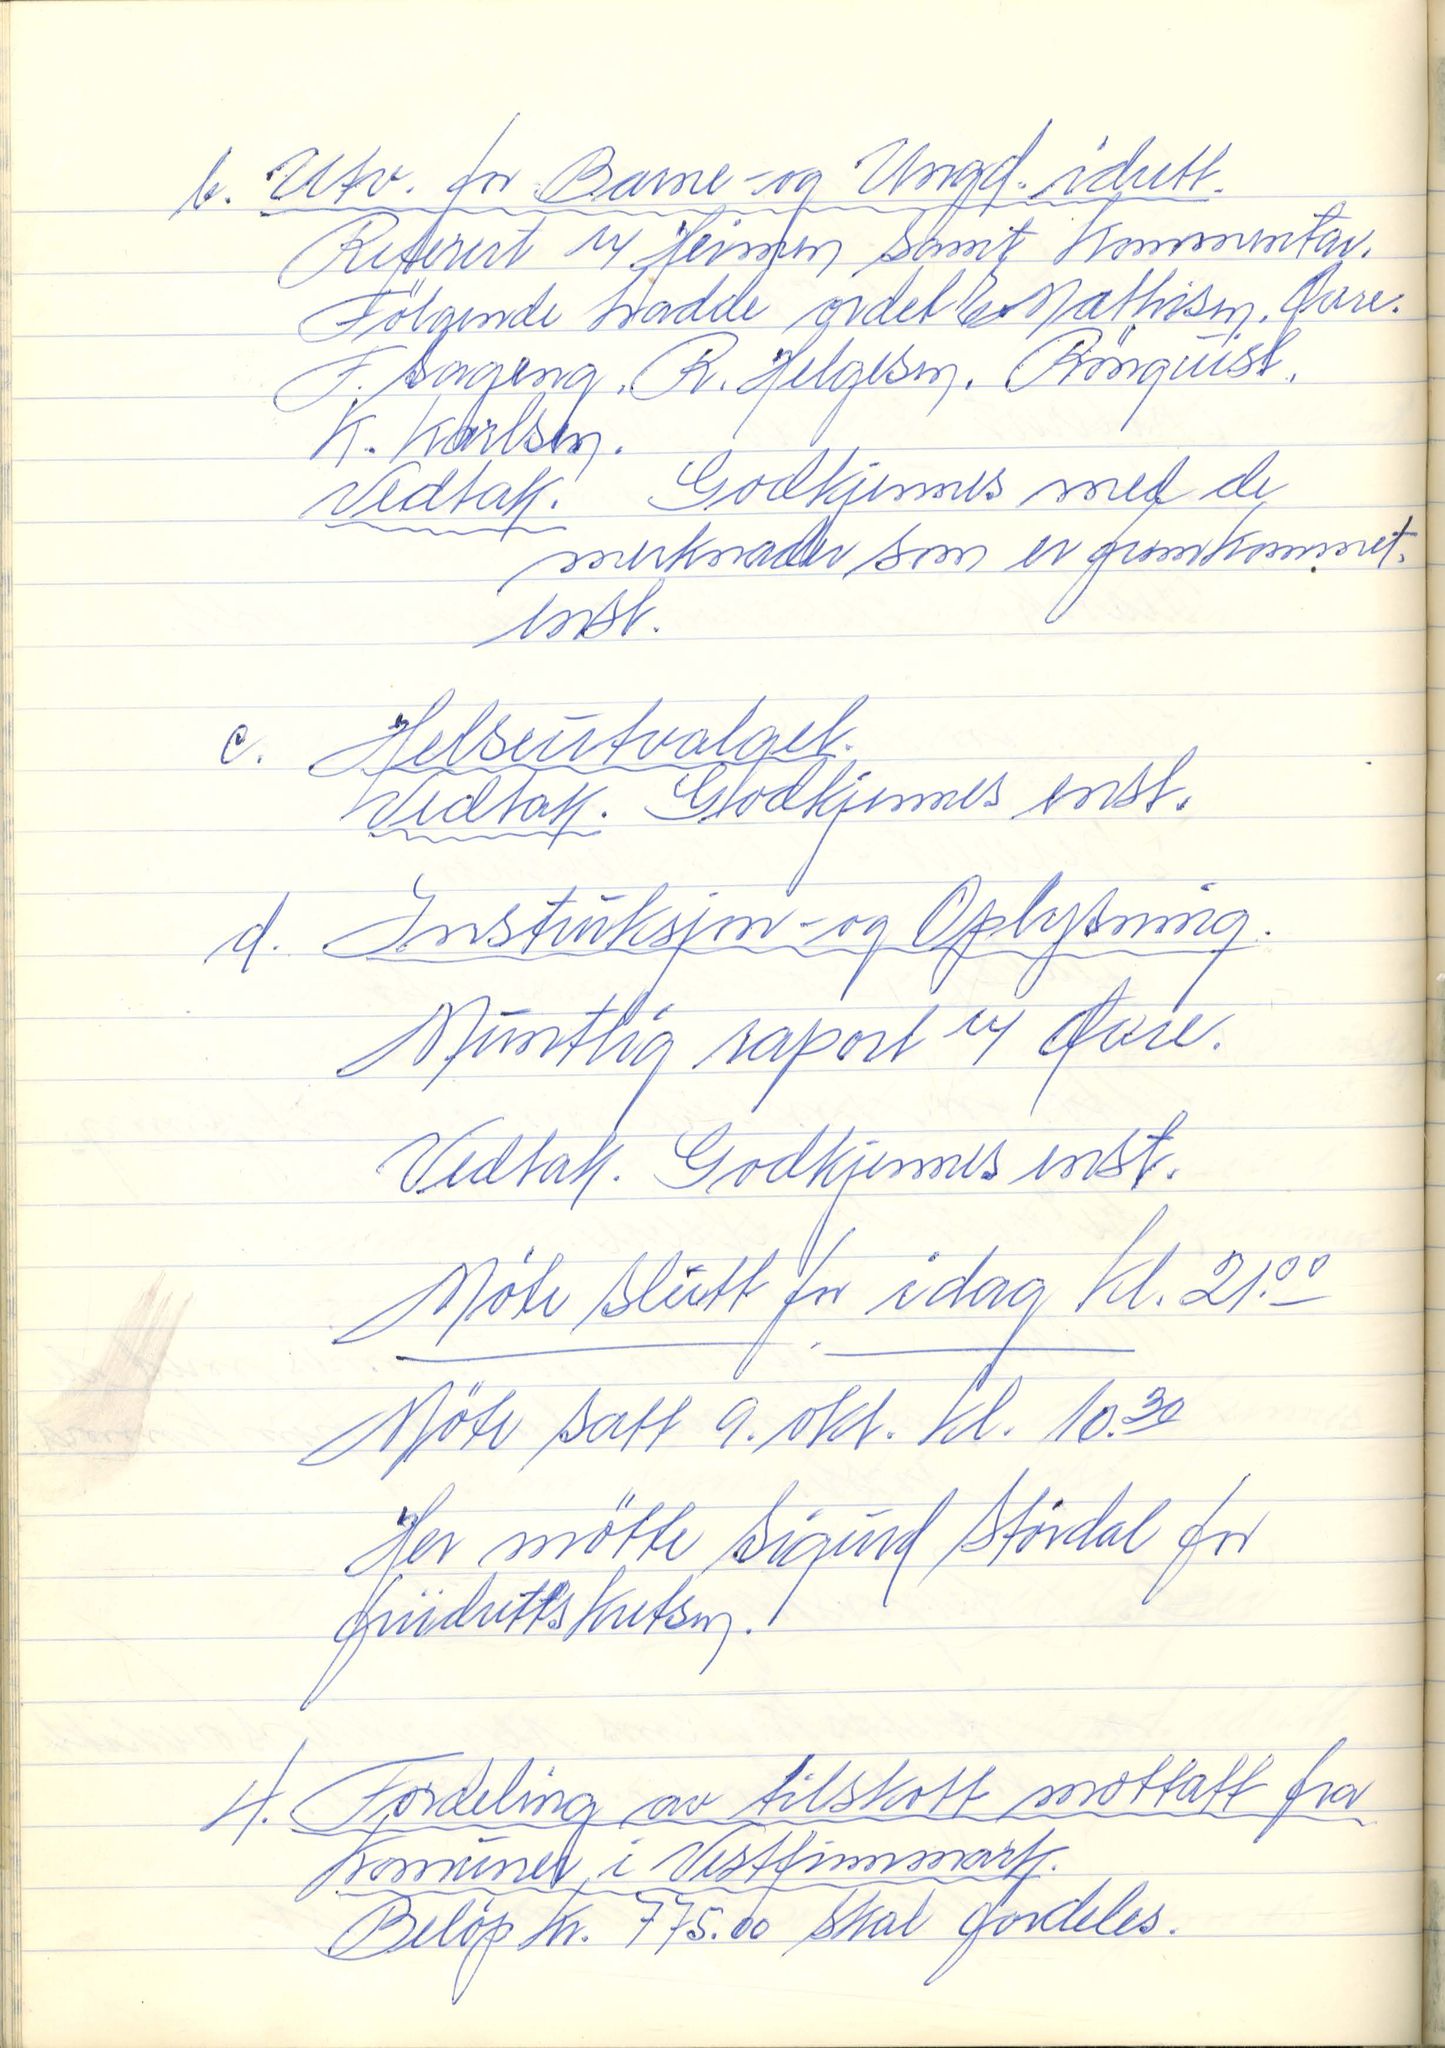 b. Utv. for Barne-og Ungd. idrett.
Referert v/ Heimen samt kommentar.
Følgende hadde ordet E. Mathisen.
F. Sageng. R. Helgesen. Rönquist.
K. Karlsen.
Vedtak. Godkjennes med de
merknader som er fremkommet.
enst.
c. Helseutvalget.
Vedtak. Godkjennes enst.
d. Instruksjon-og Oplysning.
Muntlig raport v/
Vedtak. Godkjennes enst.
Möte slutt for idag kl. 21.00
Möte satt 9. okt. kl. 10.30
Her mötte Sigurd Stördal for
friidrettskretsen.
4. Fordeling av tilskott mottatt fra
komuner i Vestfinnmark.
Beløp kr. 775.00 skal fordeles.